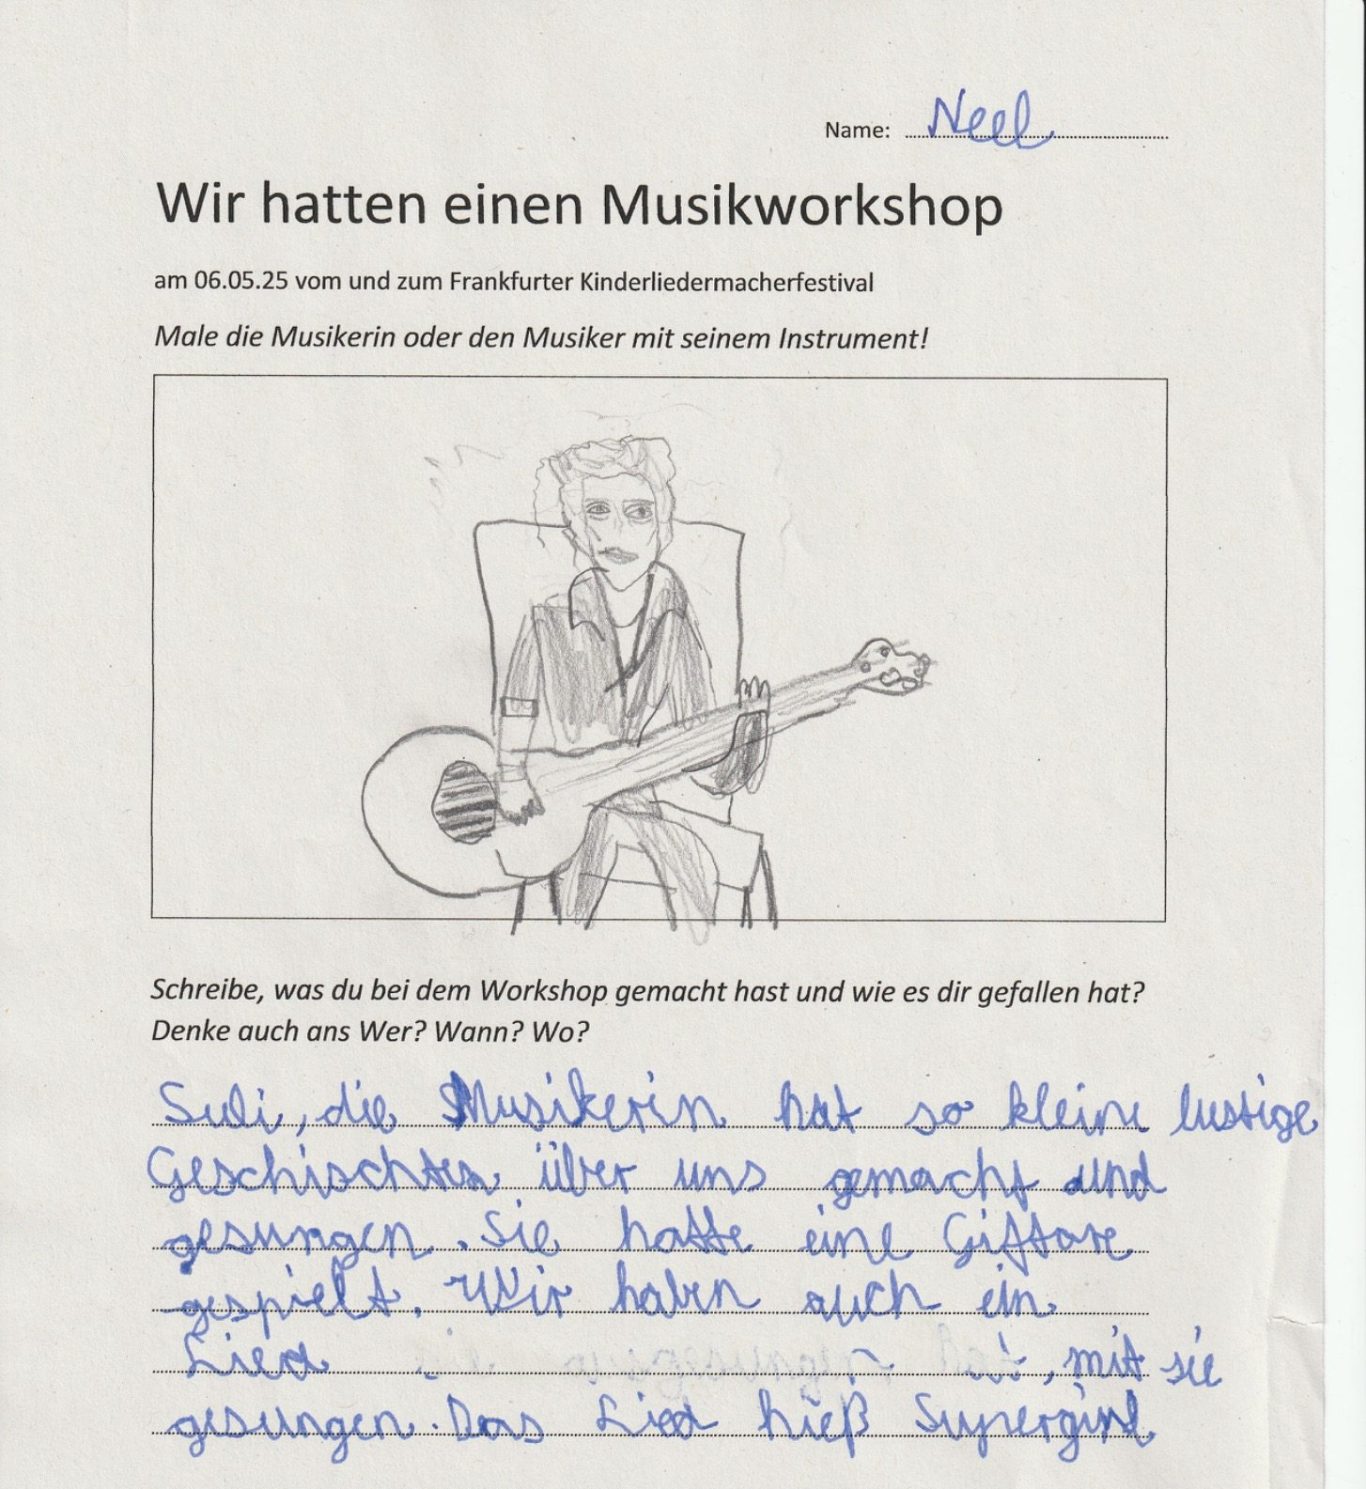 Name: Neel
Wir hatten einen Musikworkshop
am 06.05.25 vom und zum Frankfurter Kinderliedermacherfestival
Male die Musikerin oder den Musiker mit seinem Instrument!
Schreibe, was du bei dem Workshop gemacht hast und wie es dir gefallen hat?
Denke auch ans Wer? Wann? Wo?
Suli, die Musikerin hat so kleine lustige
Geschischten über uns gemacht und
gesungen. Sie hatte eine Giftare
gespielt. Wir haben auch ein
Lied , mit sie
gesungen. Das Lied hieß Supergirl